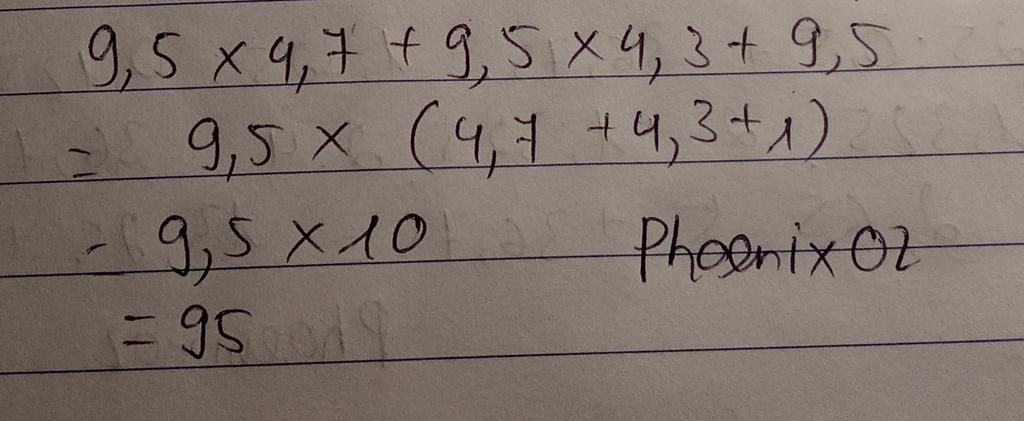 9,5 × 4,7 + 9,5 × 4,3 + 9,5
= 9,5 × (4,7 + 4,3 + 1)
= 9,5 × 10 Phoenix02
= 95